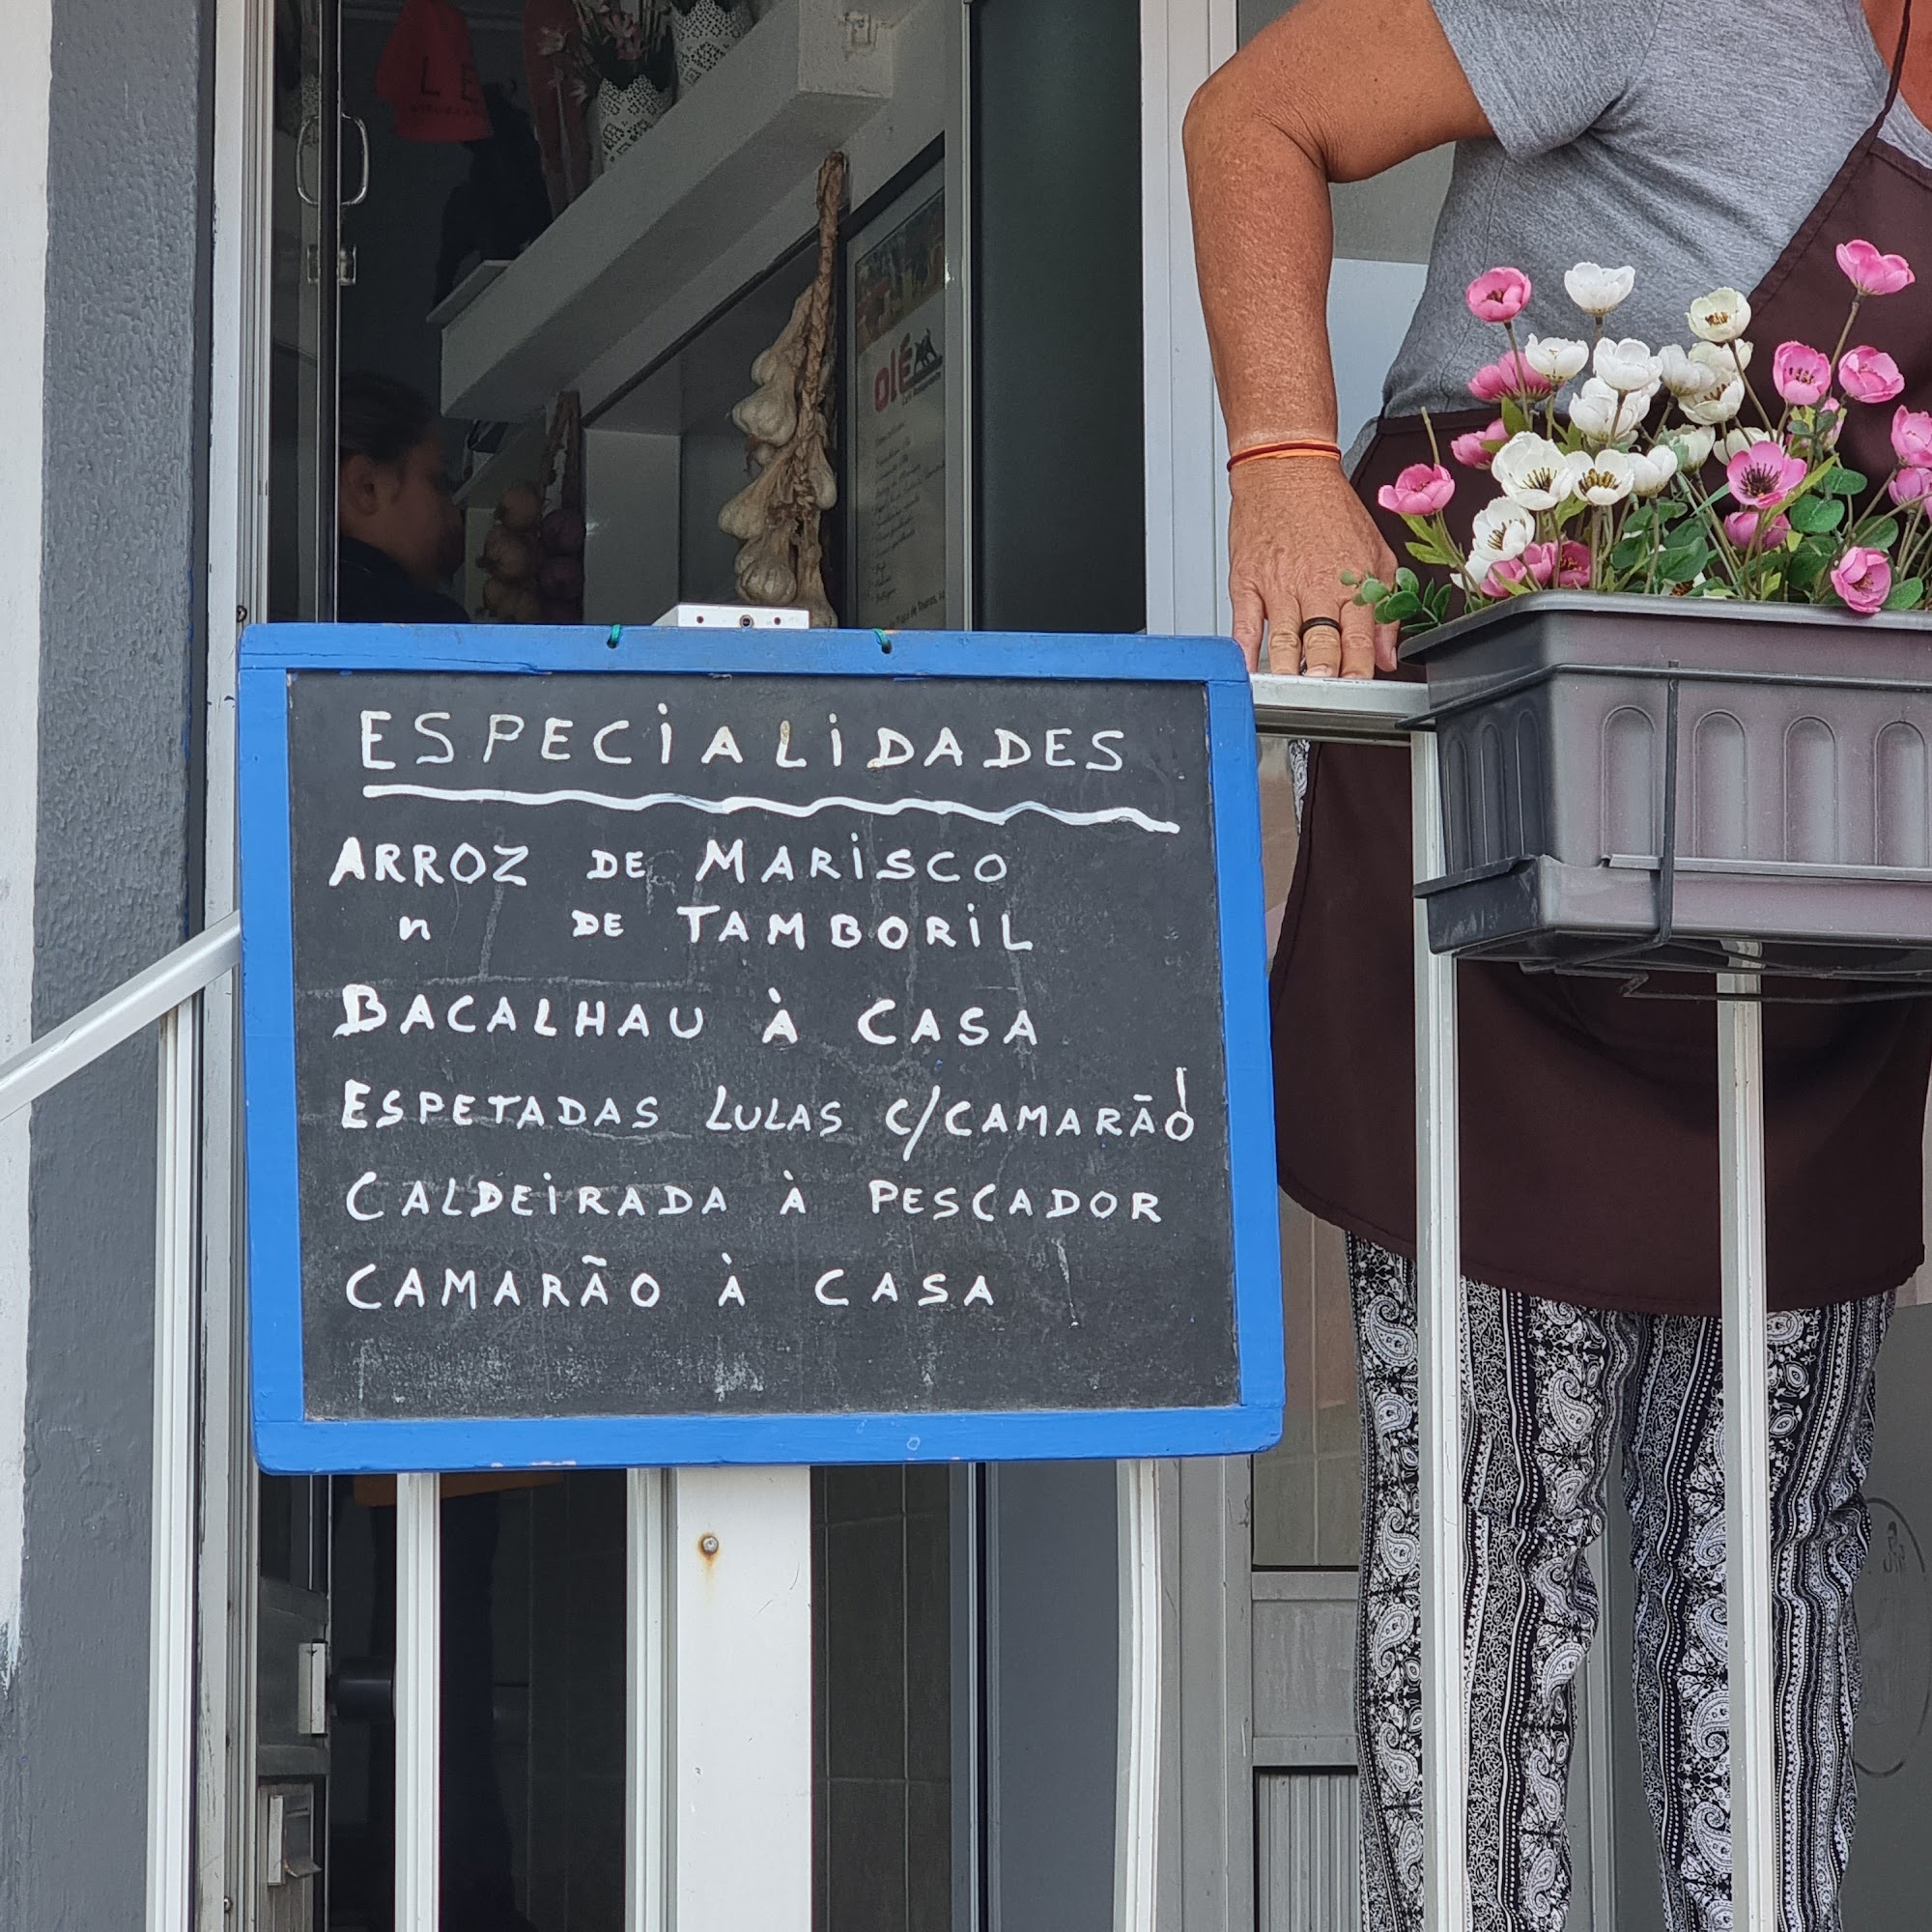 LE
olé
ESPECIALIDADES
ARROZ DE MARISCO
" DE TAMBORIL
BACALHAU À CASA
ESPETADAS LULAS C/CAMARÃO
CALDEIRADA À PESCADOR
CAMARÃO À CASA